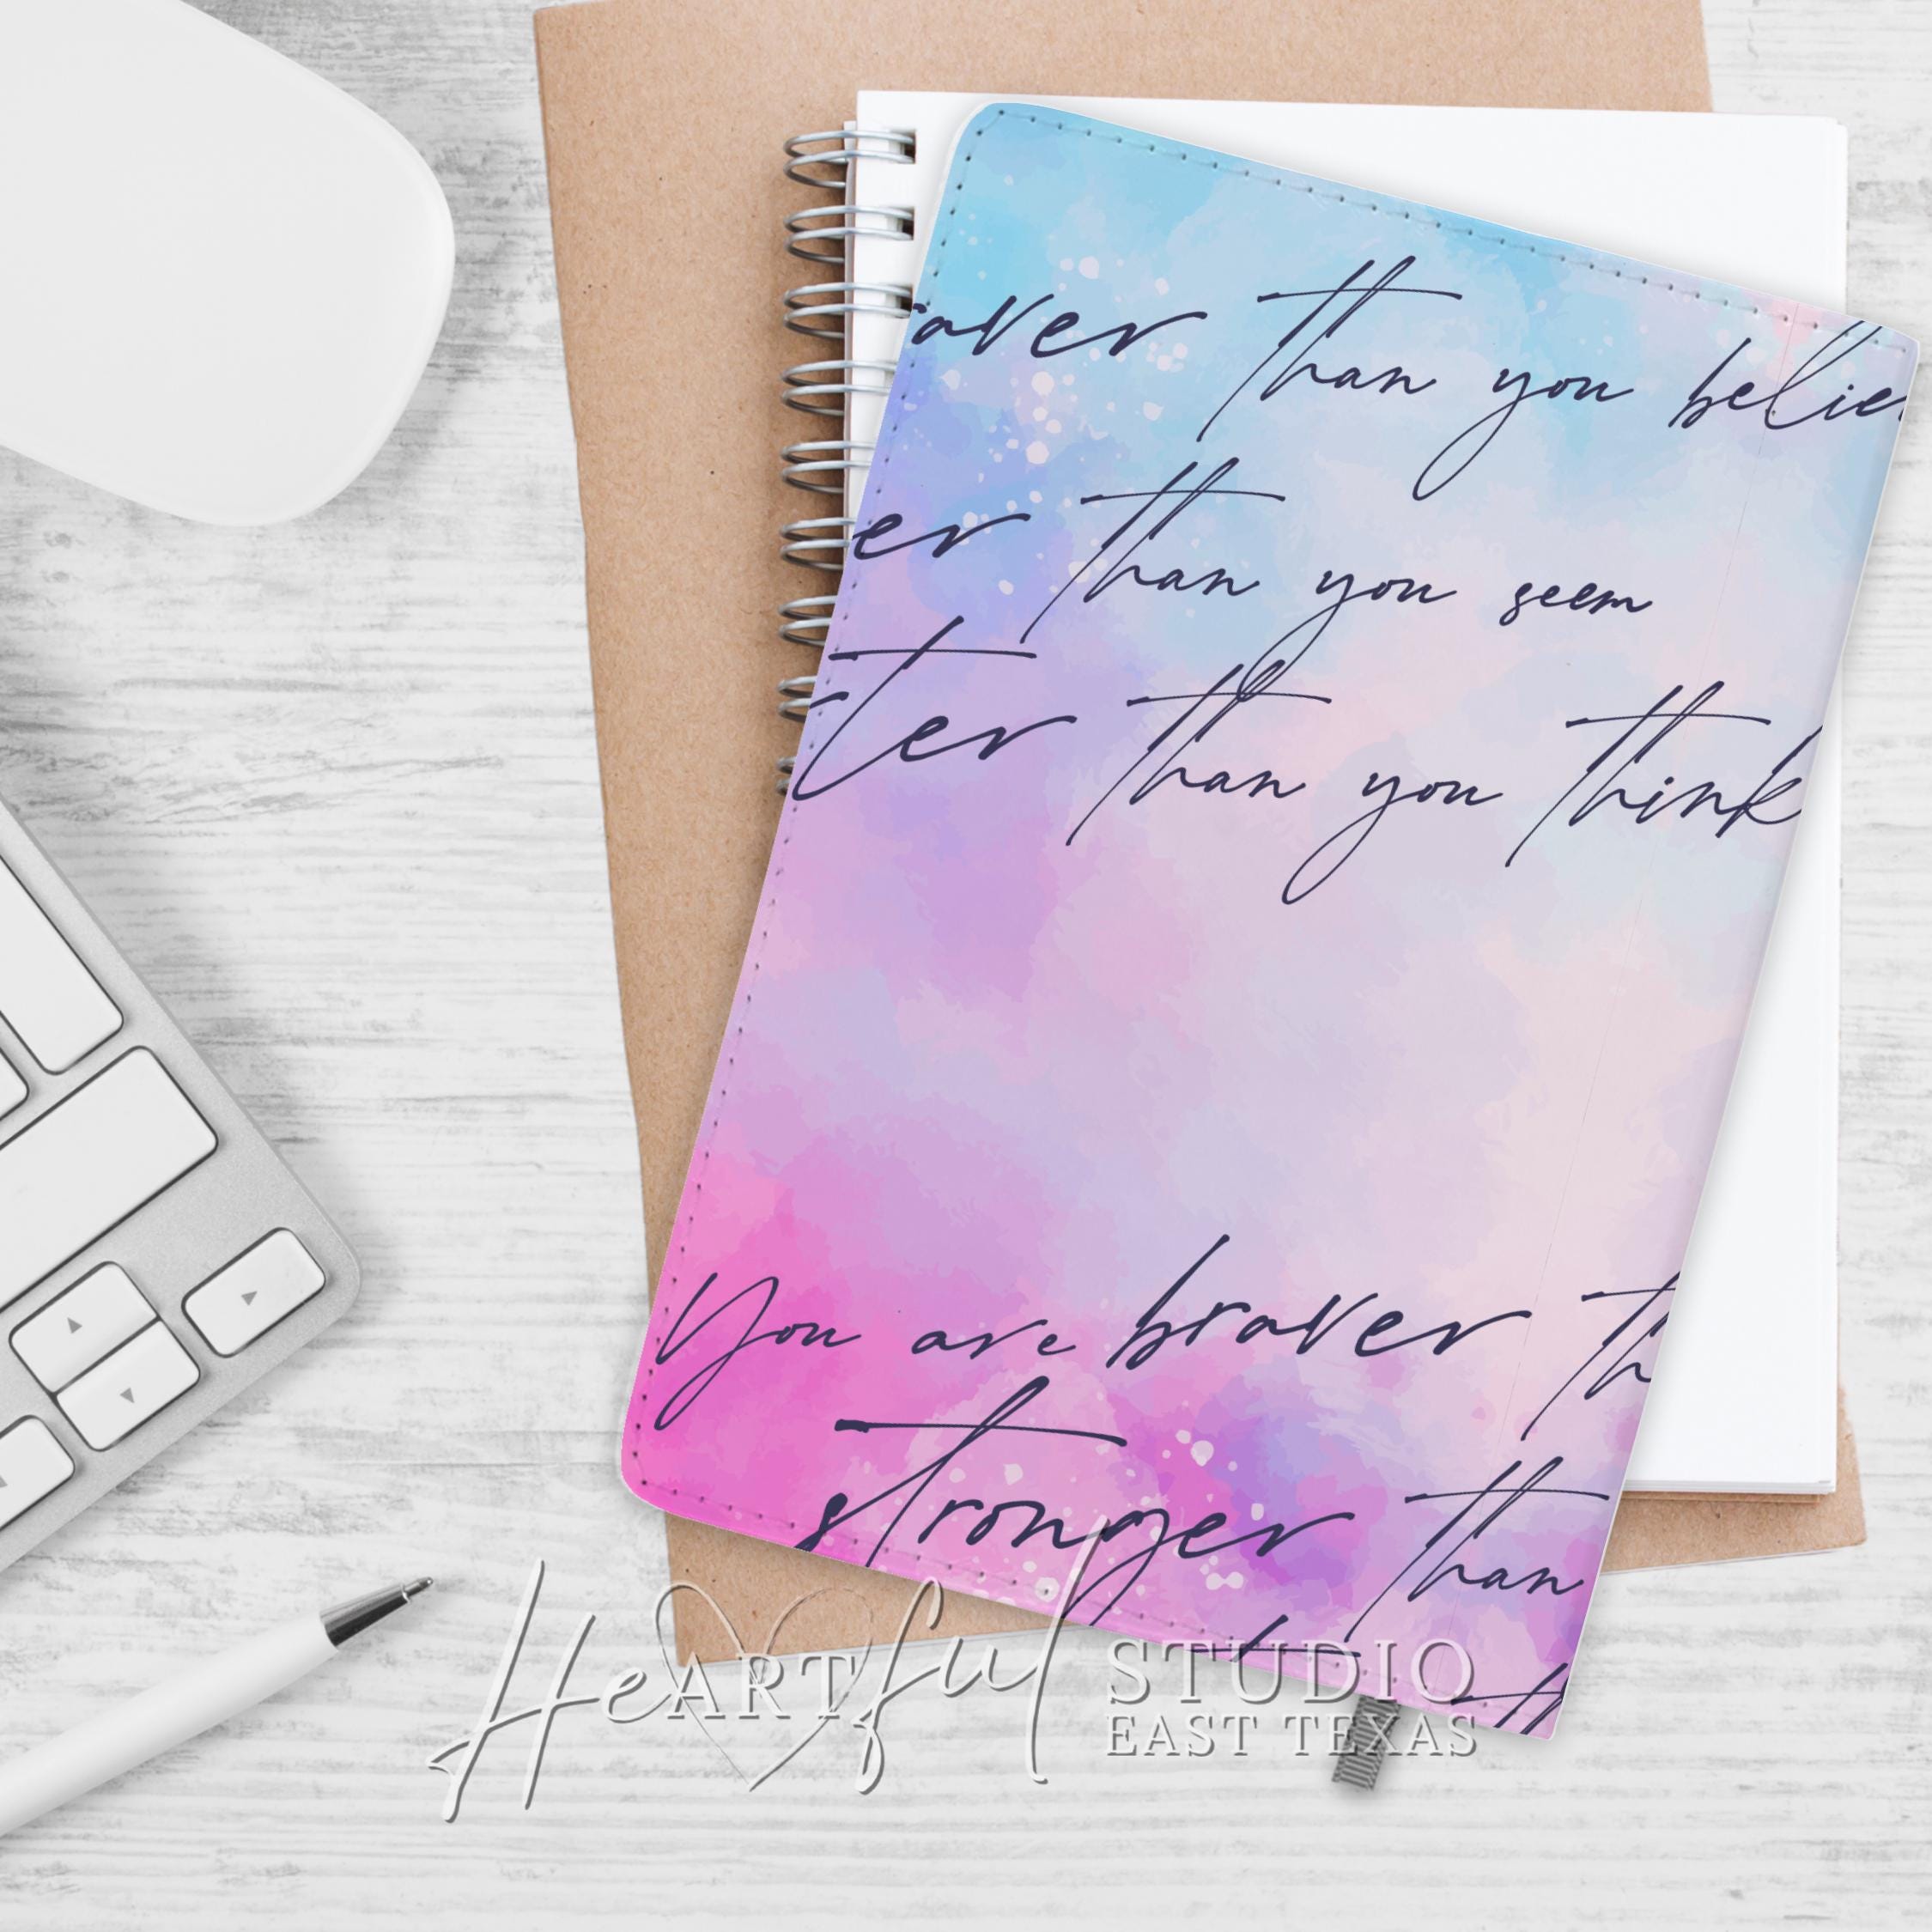 raver than you belie
er than you seem
ter than you think
You are braver th
stronger than
HeARTful STUDIO
EAST TEXAS